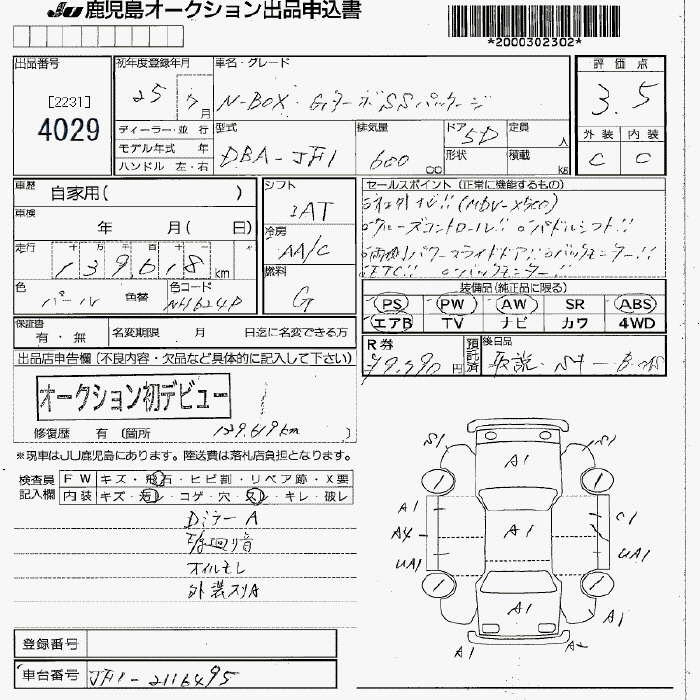 JU 鹿児島オークション出品申込書
*2000302302*
出品番号
[2231]
4029
初年度登録年月
25 7月
車名・グレード
N-BOX・GターボSSパッケージ
評価点
3.5
ディーラー・並行
モデル年式 年
ハンドル 左・右
型式
DBA-JF1
排気量
600 cc
ドア 5D
形状
定員 人
積載 kg
外装 内装
C C
車歴
自家用( )
車検
年 月( 日)
走行 十 万 千 百 十 一
139618 km
色
パール
色替
色コード
NH624P
シフト
IAT
冷房
AA/C
燃料
G
セールスポイント (正常に機能するもの)
社外ナビ!! (MDV-X500)
クルーズコントロール!! パドルシフト!!
両側パワースライドドア!! バックモニター!!
ETC!! バックモニター!!
装備品(純正品に限る)
PS PW AW SR ABS
エアB TV ナビ カワ 4WD
保証書
有・無
名変期限 月 日迄に名変できる方
R券
円
預託済
後日品
取説
出品店申告欄 (不良内容・欠品など具体的に記入して下さい)
オークション初デビュー
修復歴 有 (箇所
139.619km
※現車はJU鹿児島にあります。陸送費は落札店負担となります。
検査員記入欄
FW キズ・飛石・ヒビ割・リペア跡・X要
内装 キズ・汚レ・コゲ・穴・スレ・キレ・破レ
DミラーA
廻り音
オイルモレ
外装スリA
S1 S1
A1
A1
A4
UA1
A1
C1
UA1
A1
A1
A1
A2
登録番号
車台番号
JF1-2116495